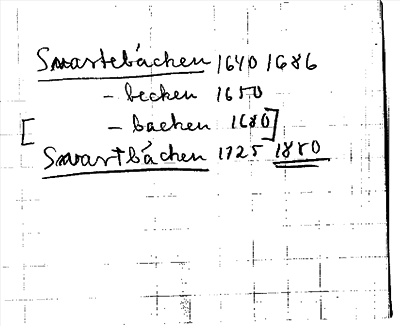 Smartebäcken 1640 1686
- becken 1650
[ - backen 1680]
Smartbäcken 1725 1880